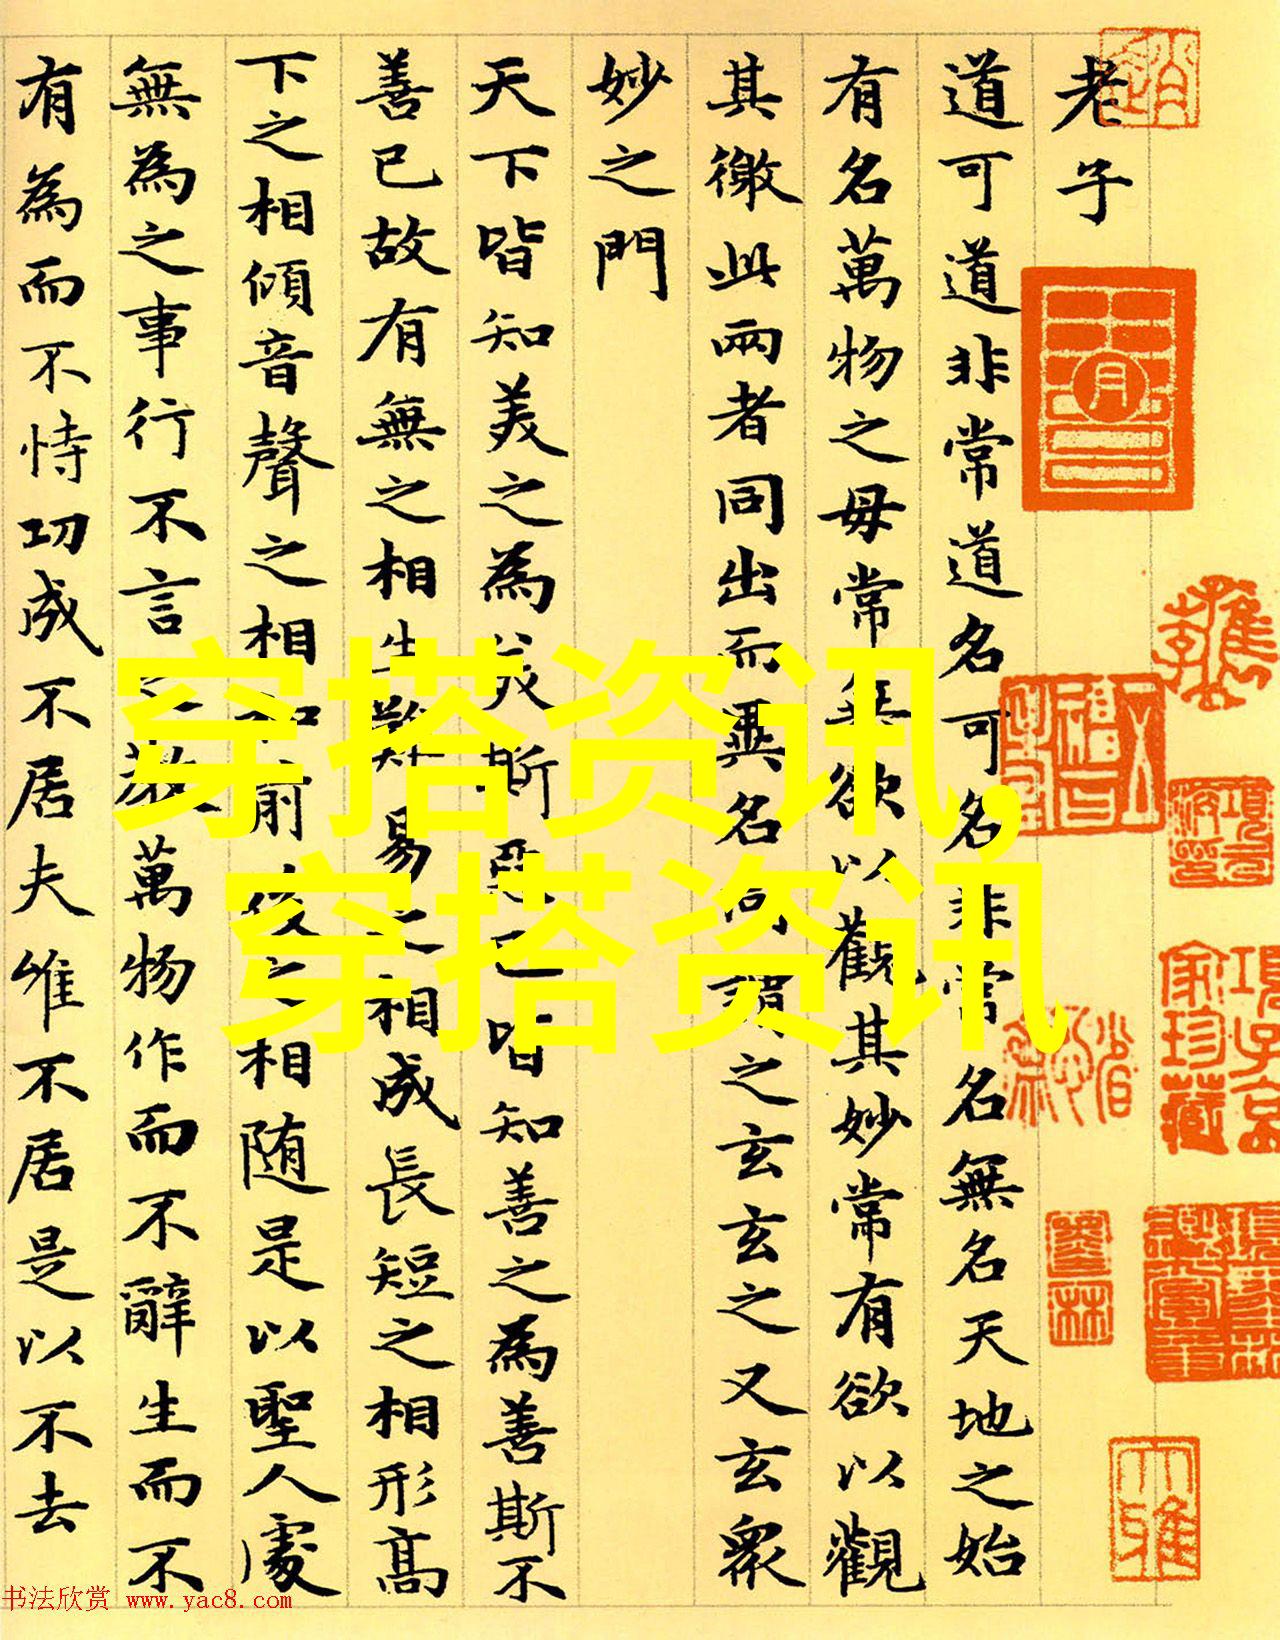 老子
道可道非常道名可名非常名無名天地之始
有名萬物之母常無欲以觀其妙常有欲以觀
其徼此兩者同出而異名同謂之玄玄之又玄衆
妙之門
天下皆知美之為美斯惡已皆知善之為善斯不
善已故有無之相生難易之相成長短之相形高
下之相傾音聲之相和前後之相随是以聖人處
無為之事行不言之教萬物作而不辭生而不
有為而不恃功成不居夫唯不居是以不去
穿搭资讯,
穿搭资讯
項子京
家珍藏
大雅
书法欣赏 www.yac8.com